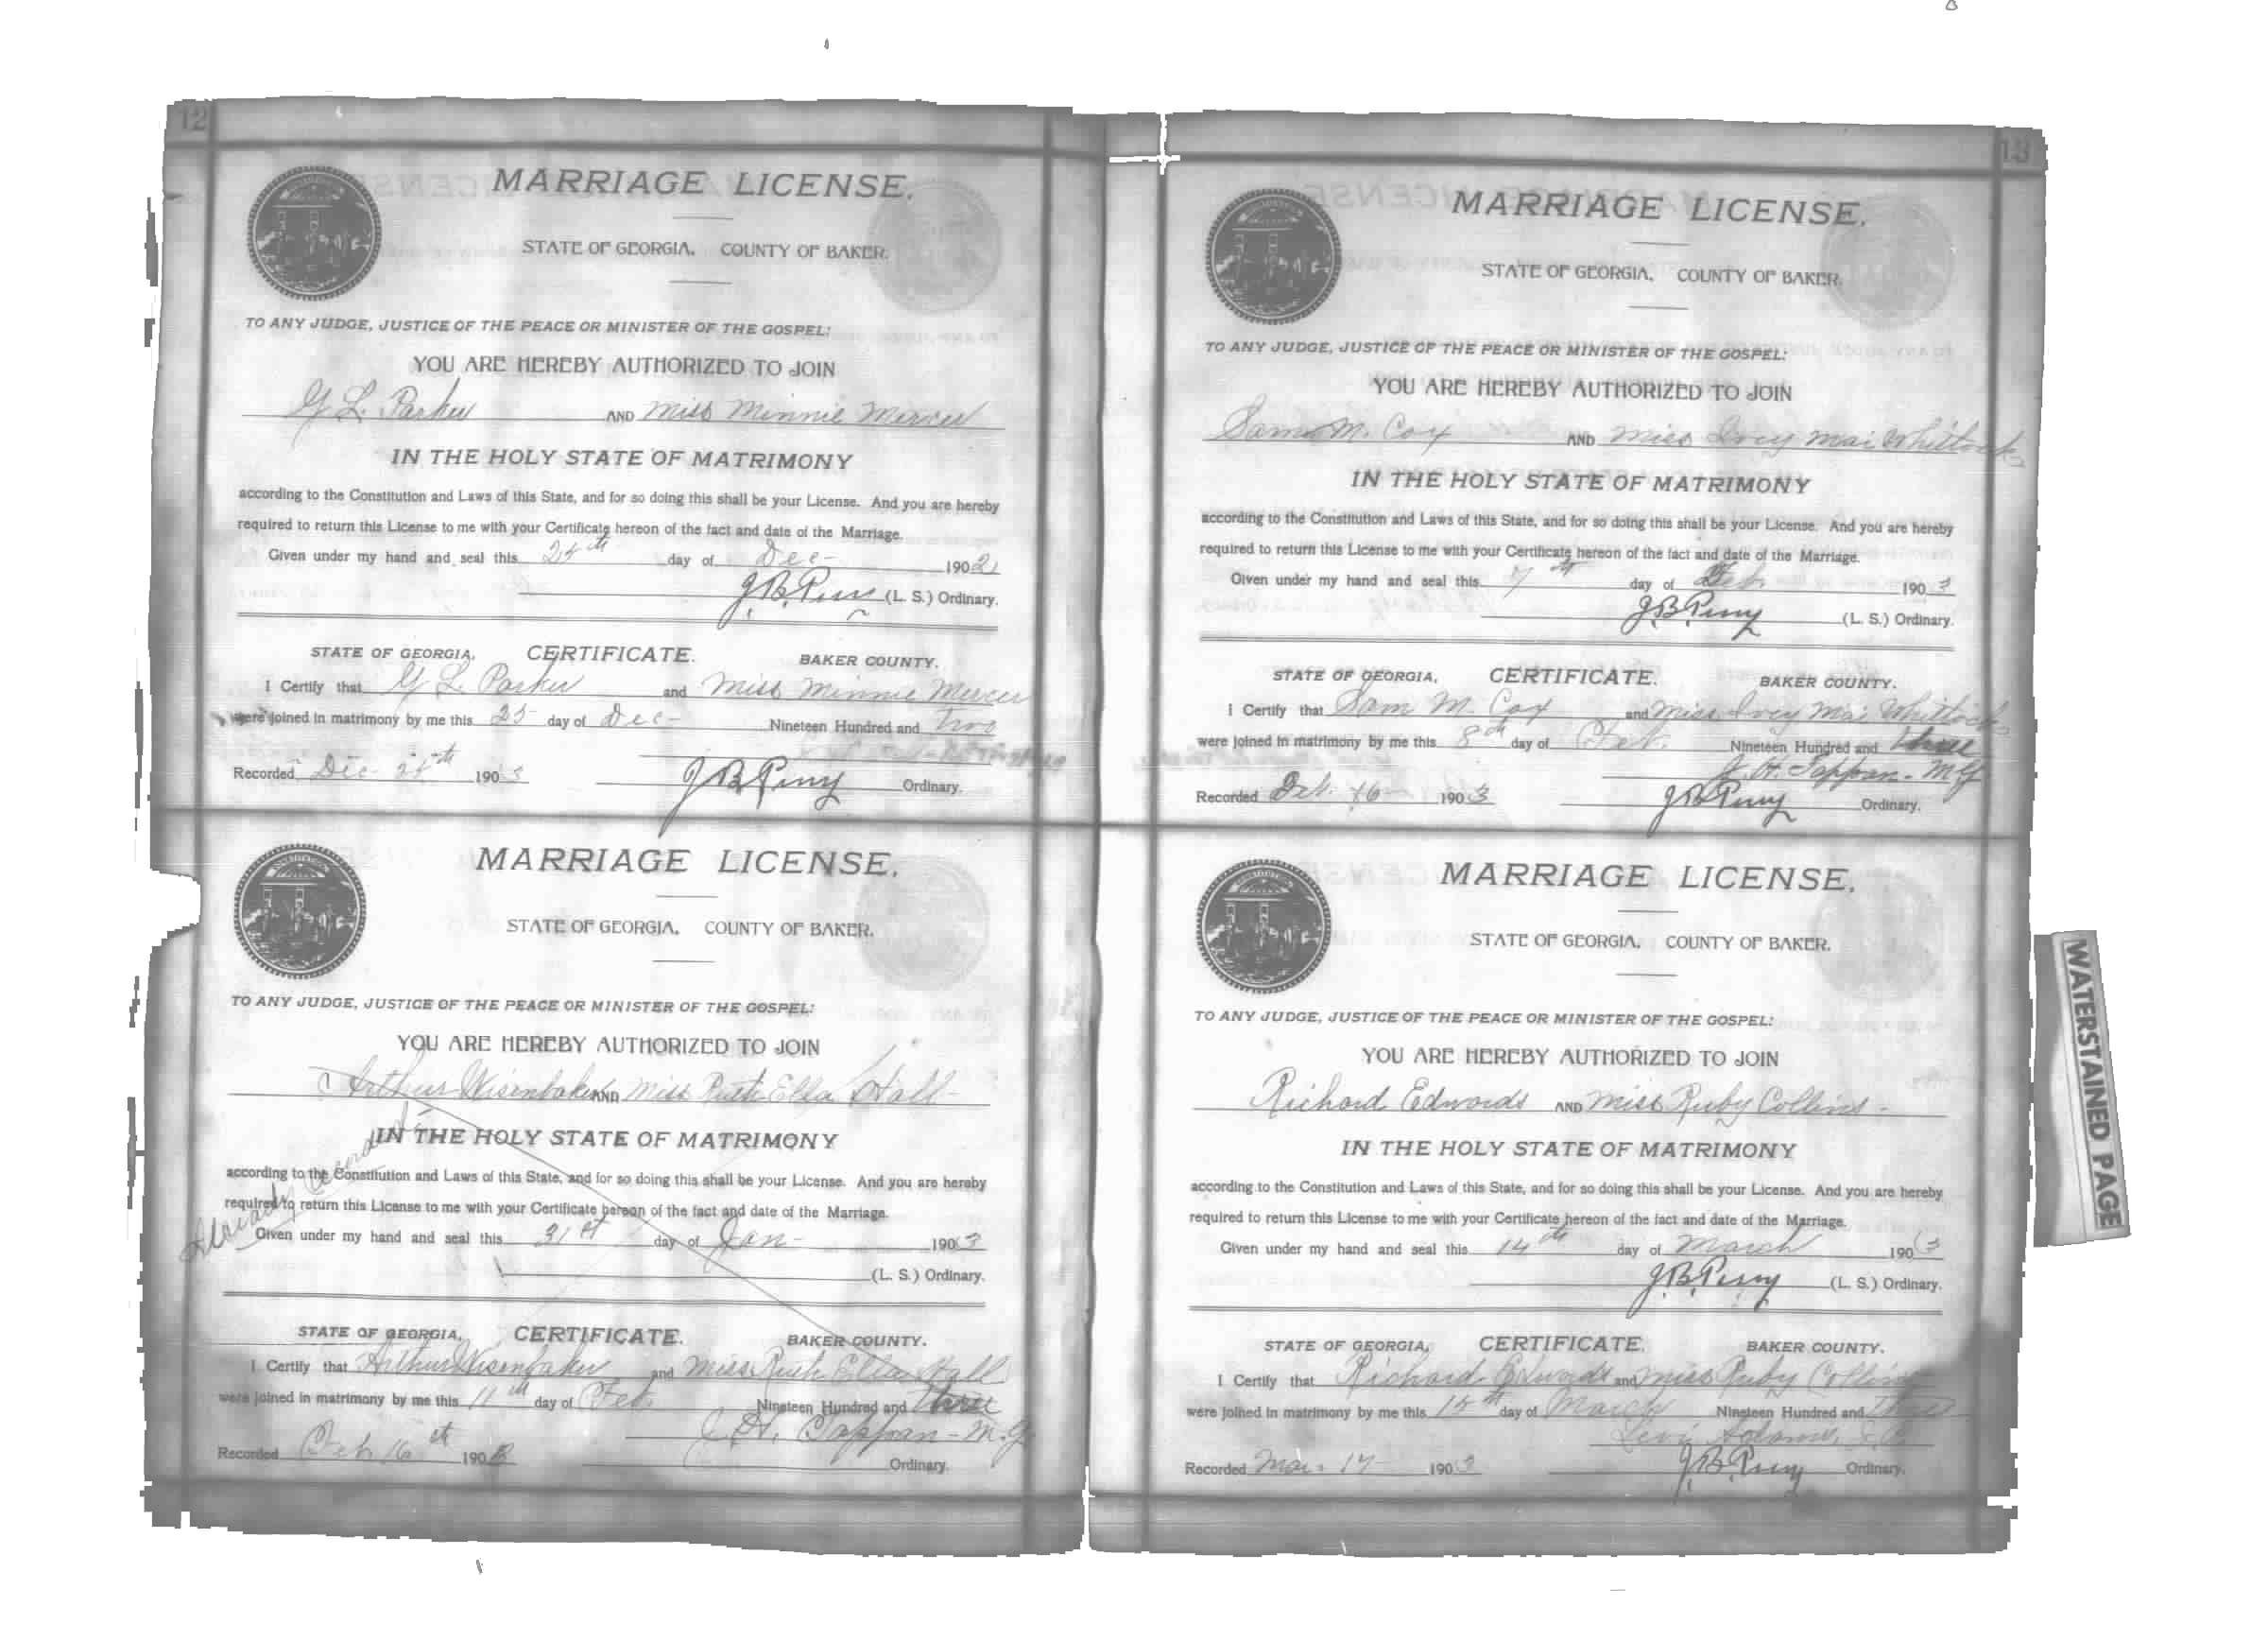 12
MARRIAGE LICENSE.
STATE OF GEORGIA. COUNTY OF BAKER.
TO ANY JUDGE, JUSTICE OF THE PEACE OR MINISTER OF THE GOSPEL:
YOU ARE HEREBY AUTHORIZED TO JOIN
L. Parker AND Miss Minnie Mercer
IN THE HOLY STATE OF MATRIMONY
according to the Constitution and Laws of this State, and for so doing this shall be your License. And you are hereby
required to return this License to me with your Certificate hereon of the fact and date of the Marriage.
Given under my hand and seal this day of Dec- 1902
J.B. Perry (L. S.) Ordinary.
STATE OF GEORGIA, CERTIFICATE. BAKER COUNTY.
I Certify that L. Parker and Miss Minnie Mercer
were joined in matrimony by me this 25 day of Dec- Nineteen Hundred and two
Recorded Dec 1903 J B Perry Ordinary.
MARRIAGE LICENSE.
STATE OF GEORGIA. COUNTY OF BAKER.
TO ANY JUDGE, JUSTICE OF THE PEACE OR MINISTER OF THE GOSPEL:
YOU ARE HEREBY AUTHORIZED TO JOIN
Arthur Wisenbaker AND Miss Ruth Ella Hall
IN THE HOLY STATE OF MATRIMONY
according to the Constitution and Laws of this State, and for so doing this shall be your License. And you are hereby
required to return this License to me with your Certificate hereon of the fact and date of the Marriage.
Given under my hand and seal this 31st day of Jan- 1903
(L. S.) Ordinary.
STATE OF GEORGIA, CERTIFICATE. BAKER COUNTY.
I Certify that Arthur Wisenbaker and Miss Ruth Ella Hall
were joined in matrimony by me this 11th day of Feb. Nineteen Hundred and three
J. H. Tappan - M.G.
Recorded Feb 16th 1903 Ordinary.
13
MARRIAGE LICENSE.
STATE OF GEORGIA. COUNTY OF BAKER.
TO ANY JUDGE, JUSTICE OF THE PEACE OR MINISTER OF THE GOSPEL:
YOU ARE HEREBY AUTHORIZED TO JOIN
Sam M. Cox AND Miss Ivey Mai Whittock
IN THE HOLY STATE OF MATRIMONY
according to the Constitution and Laws of this State, and for so doing this shall be your License. And you are hereby
required to return this License to me with your Certificate hereon of the fact and date of the Marriage.
Given under my hand and seal this 7th day of Feb 1903
J.B. Perry (L. S.) Ordinary.
STATE OF GEORGIA, CERTIFICATE. BAKER COUNTY.
I Certify that Sam M. Cox and Miss Ivey Mai Whittock
were joined in matrimony by me this 8th day of Feb. Nineteen Hundred and three
J. H. Tappan - M G
Recorded Feb. 16 1903 J B Perry Ordinary.
MARRIAGE LICENSE.
STATE OF GEORGIA. COUNTY OF BAKER.
TO ANY JUDGE, JUSTICE OF THE PEACE OR MINISTER OF THE GOSPEL:
YOU ARE HEREBY AUTHORIZED TO JOIN
Richard Edwards AND Miss Ruby Collins -
IN THE HOLY STATE OF MATRIMONY
according to the Constitution and Laws of this State, and for so doing this shall be your License. And you are hereby
required to return this License to me with your Certificate hereon of the fact and date of the Marriage.
Given under my hand and seal this 14th day of March 1903
J.B. Perry (L. S.) Ordinary.
STATE OF GEORGIA, CERTIFICATE. BAKER COUNTY.
I Certify that Richard Edwards and Miss Ruby Collins
were joined in matrimony by me this 15th day of March Nineteen Hundred and three
Levi Adams
Recorded Mar. 17 1903 J.B. Perry Ordinary.
WATERSTAINED PAGE